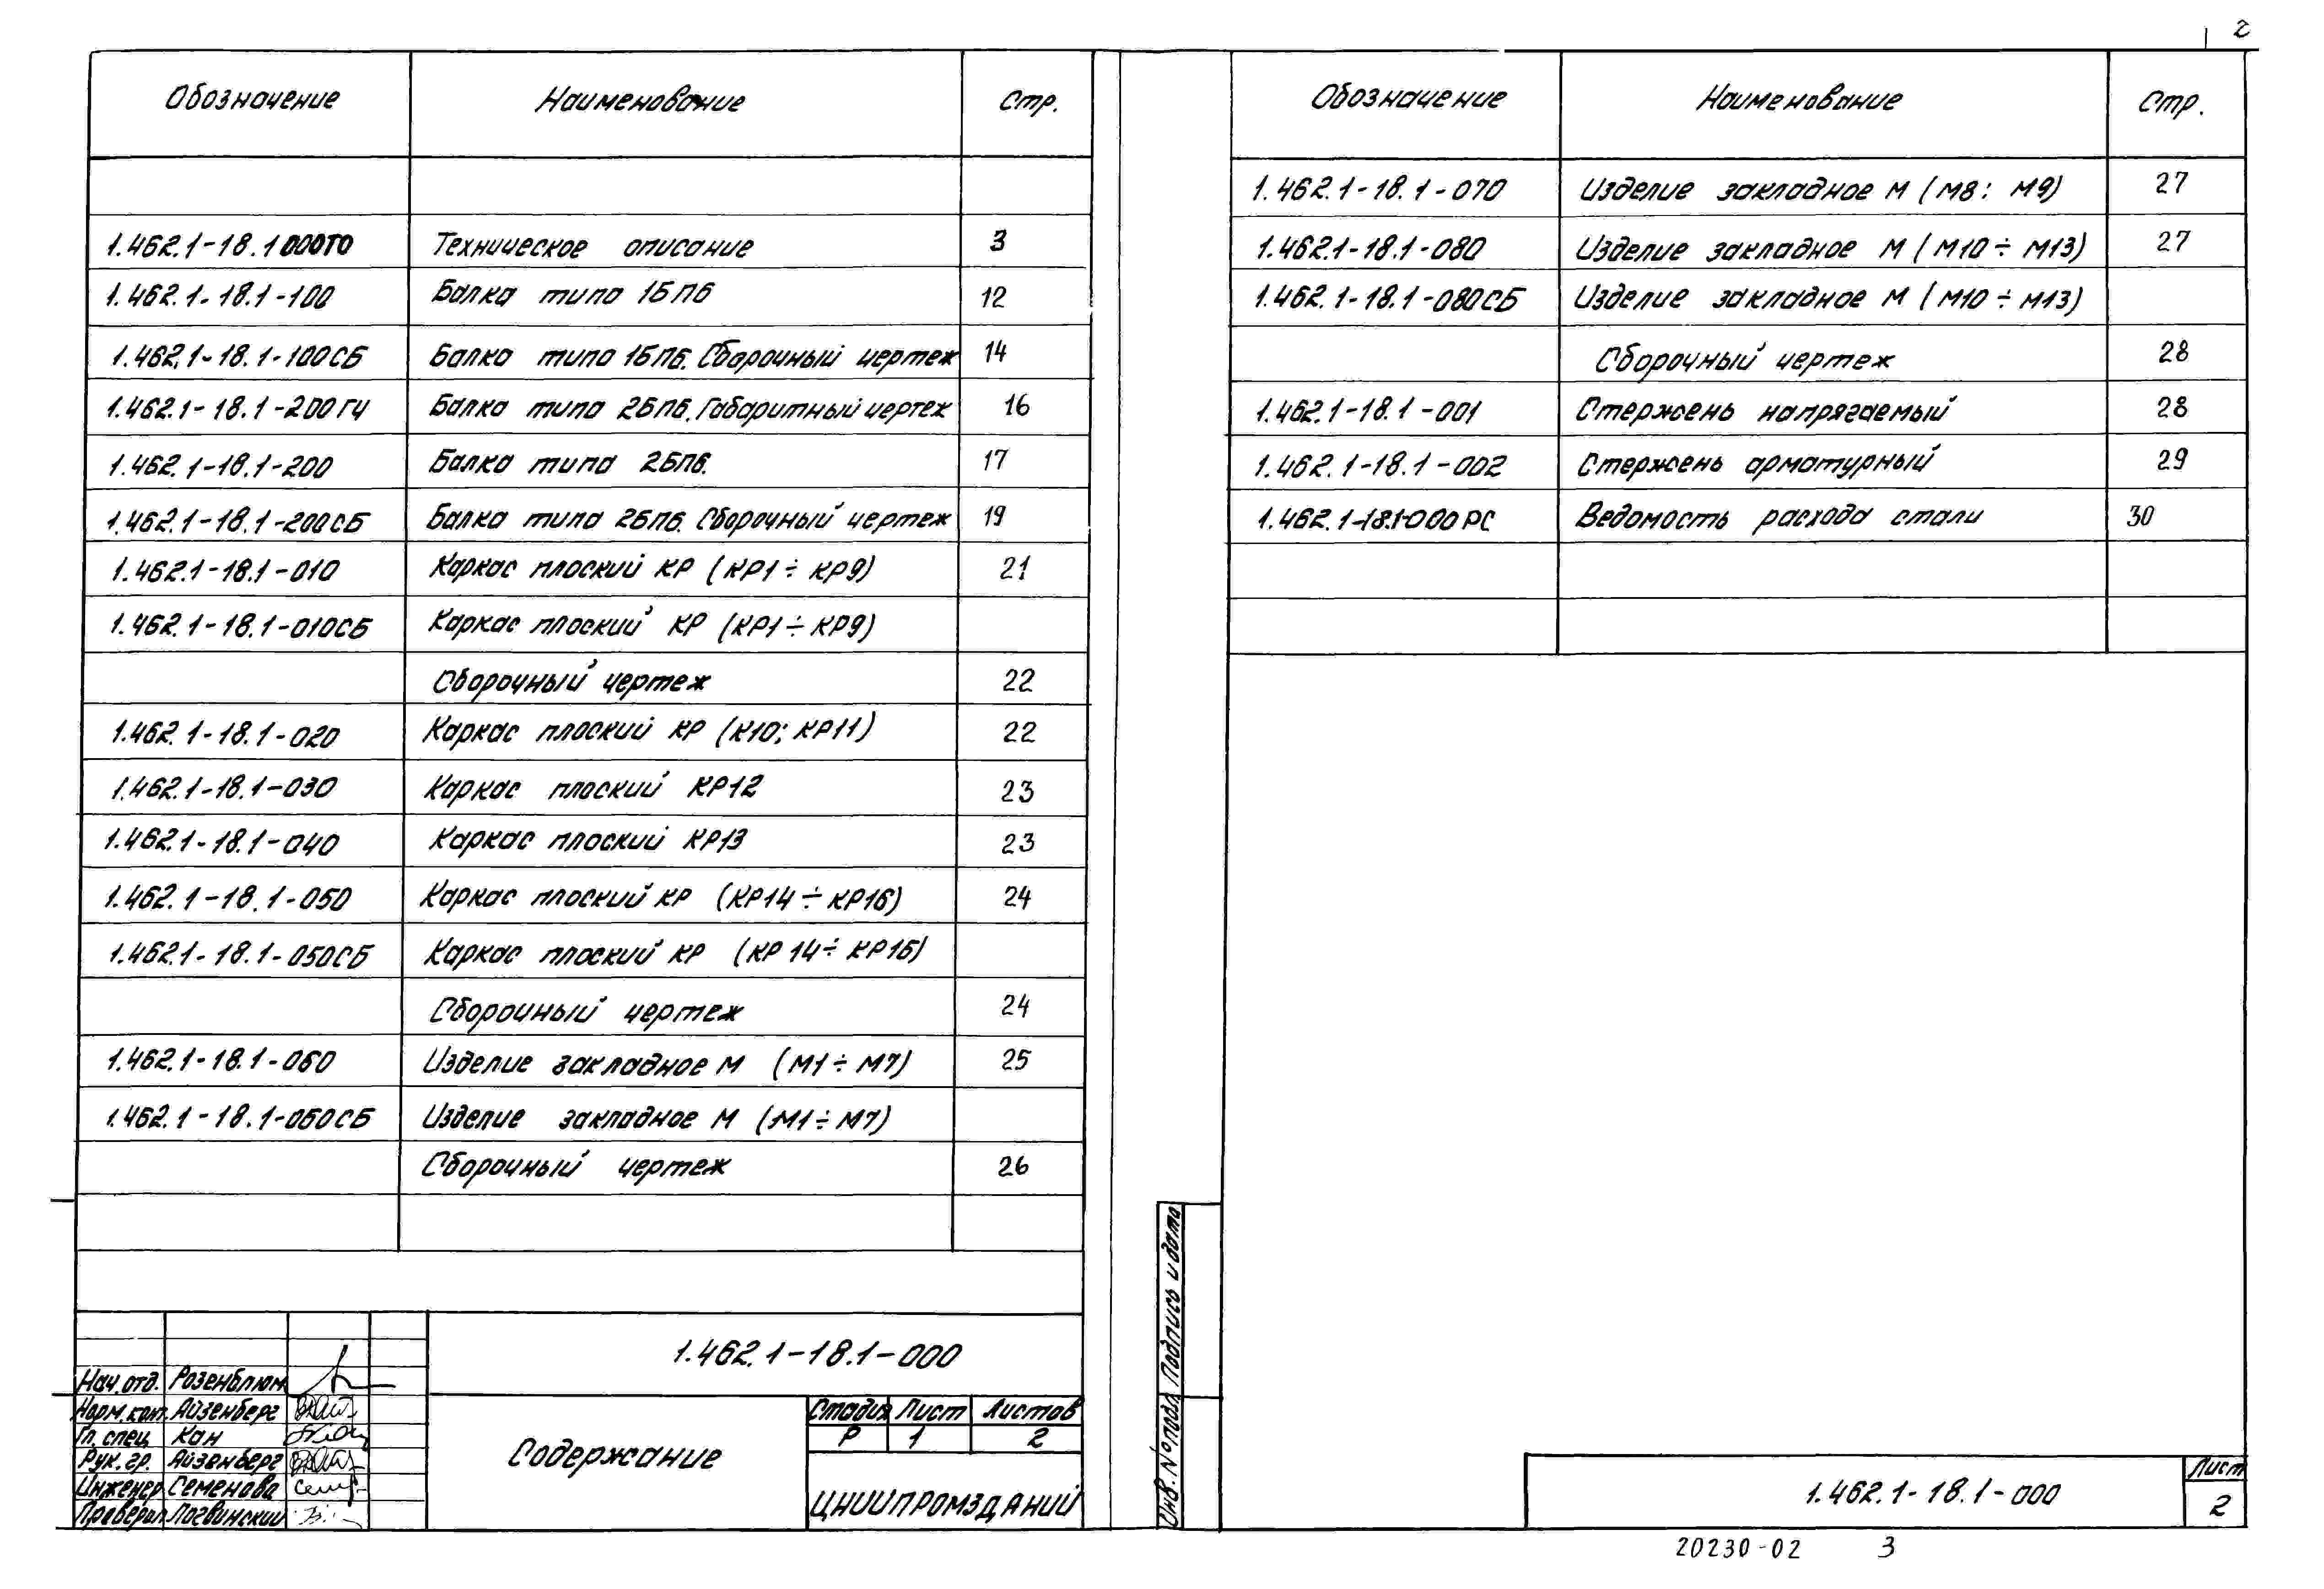 2
Обозначение Наименование Стр.
1.462.1-18.1 000ТО Техническое описание 3
1.462.1-18.1-100 Балка типа 1БП6 12
1.462.1-18.1-100СБ Балка типа 1БП6. Сборочный чертеж 14
1.462.1-18.1-200ГЧ Балка типа 2БП6. Габаритный чертеж 16
1.462.1-18.1-200 Балка типа 2БП6. 17
1.462.1-18.1-200СБ Балка типа 2БП6. Сборочный чертеж 19
1.462.1-18.1-010 Каркас плоский КР (КР1÷КР9) 21
1.462.1-18.1-010СБ Каркас плоский КР (КР1÷КР9)
Сборочный чертеж 22
1.462.1-18.1-020 Каркас плоский КР (К10; КР11) 22
1.462.1-18.1-030 Каркас плоский КР12 23
1.462.1-18.1-040 Каркас плоский КР13 23
1.462.1-18.1-050 Каркас плоский КР (КР14÷КР16) 24
1.462.1-18.1-050СБ Каркас плоский КР (КР14÷КР16)
Сборочный чертеж 24
1.462.1-18.1-060 Изделие закладное М (М1÷М7) 25
1.462.1-18.1-060СБ Изделие закладное М (М1÷М7)
Сборочный чертеж 26
1.462.1-18.1-000
Нач.отд. Розенблюм
Норм.конт. Айзенберг
Гл. спец. Кан
Рук. гр. Айзенберг
Инженер Семенова
Проверил Логвинский
Содержание
Стадия Лист Листов
Р 1 2
ЦНИИПРОМЗДАНИЙ
Обозначение Наименование Стр.
1.462.1-18.1-070 Изделие закладное М (М8; М9) 27
1.462.1-18.1-080 Изделие закладное М (М10÷М13) 27
1.462.1-18.1-080СБ Изделие закладное М (М10÷М13)
Сборочный чертеж 28
1.462.1-18.1-001 Стержень напрягаемый 28
1.462.1-18.1-002 Стержень арматурный 29
1.462.1-18.1-000РС Ведомость расхода стали 30
Инв. № подл. Подпись и дата
1.462.1-18.1-000
Лист
2
20230-02 3